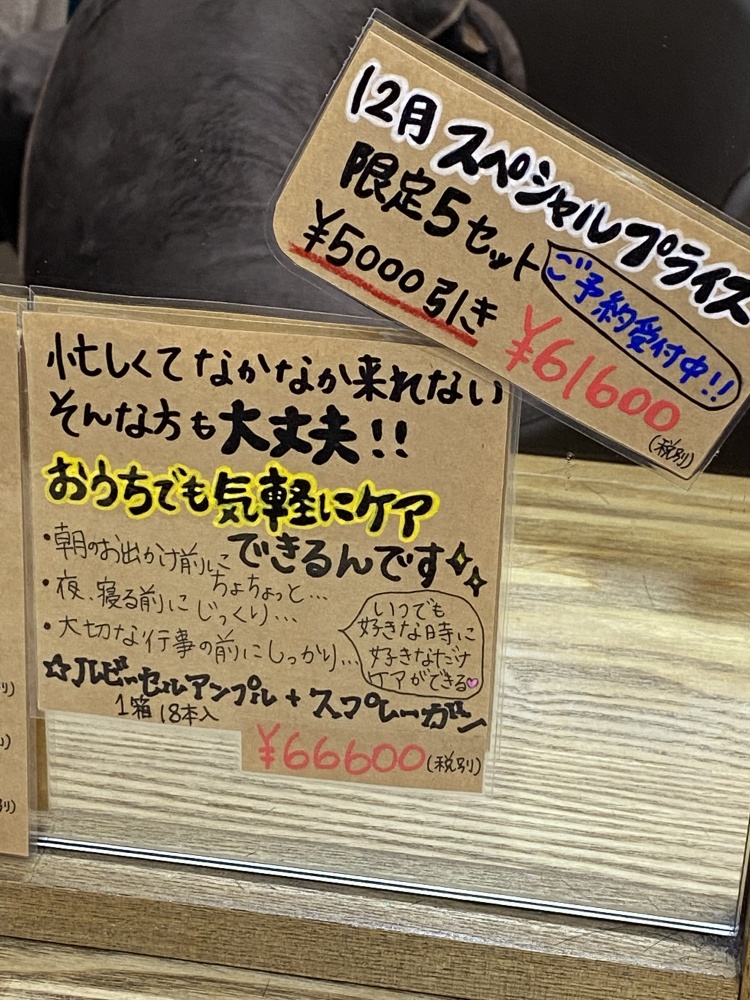 12月スペシャルプライス
限定5セット
ご予約受付中!!
¥5000引き
¥61600
(税別)
忙しくてなかなか来れない
そんな方も大丈夫!!
おうちでも気軽にケア
できるんです
・朝のお出かけ前に
ちょちょっと…
・夜、寝る前にじっくり…
・大切な行事の前にしっかり…
いつでも
好きな時に
好きなだけ
ケアができる
☆ルビーセルアンプル+スプレーガン
1箱18本入
¥66600(税別)